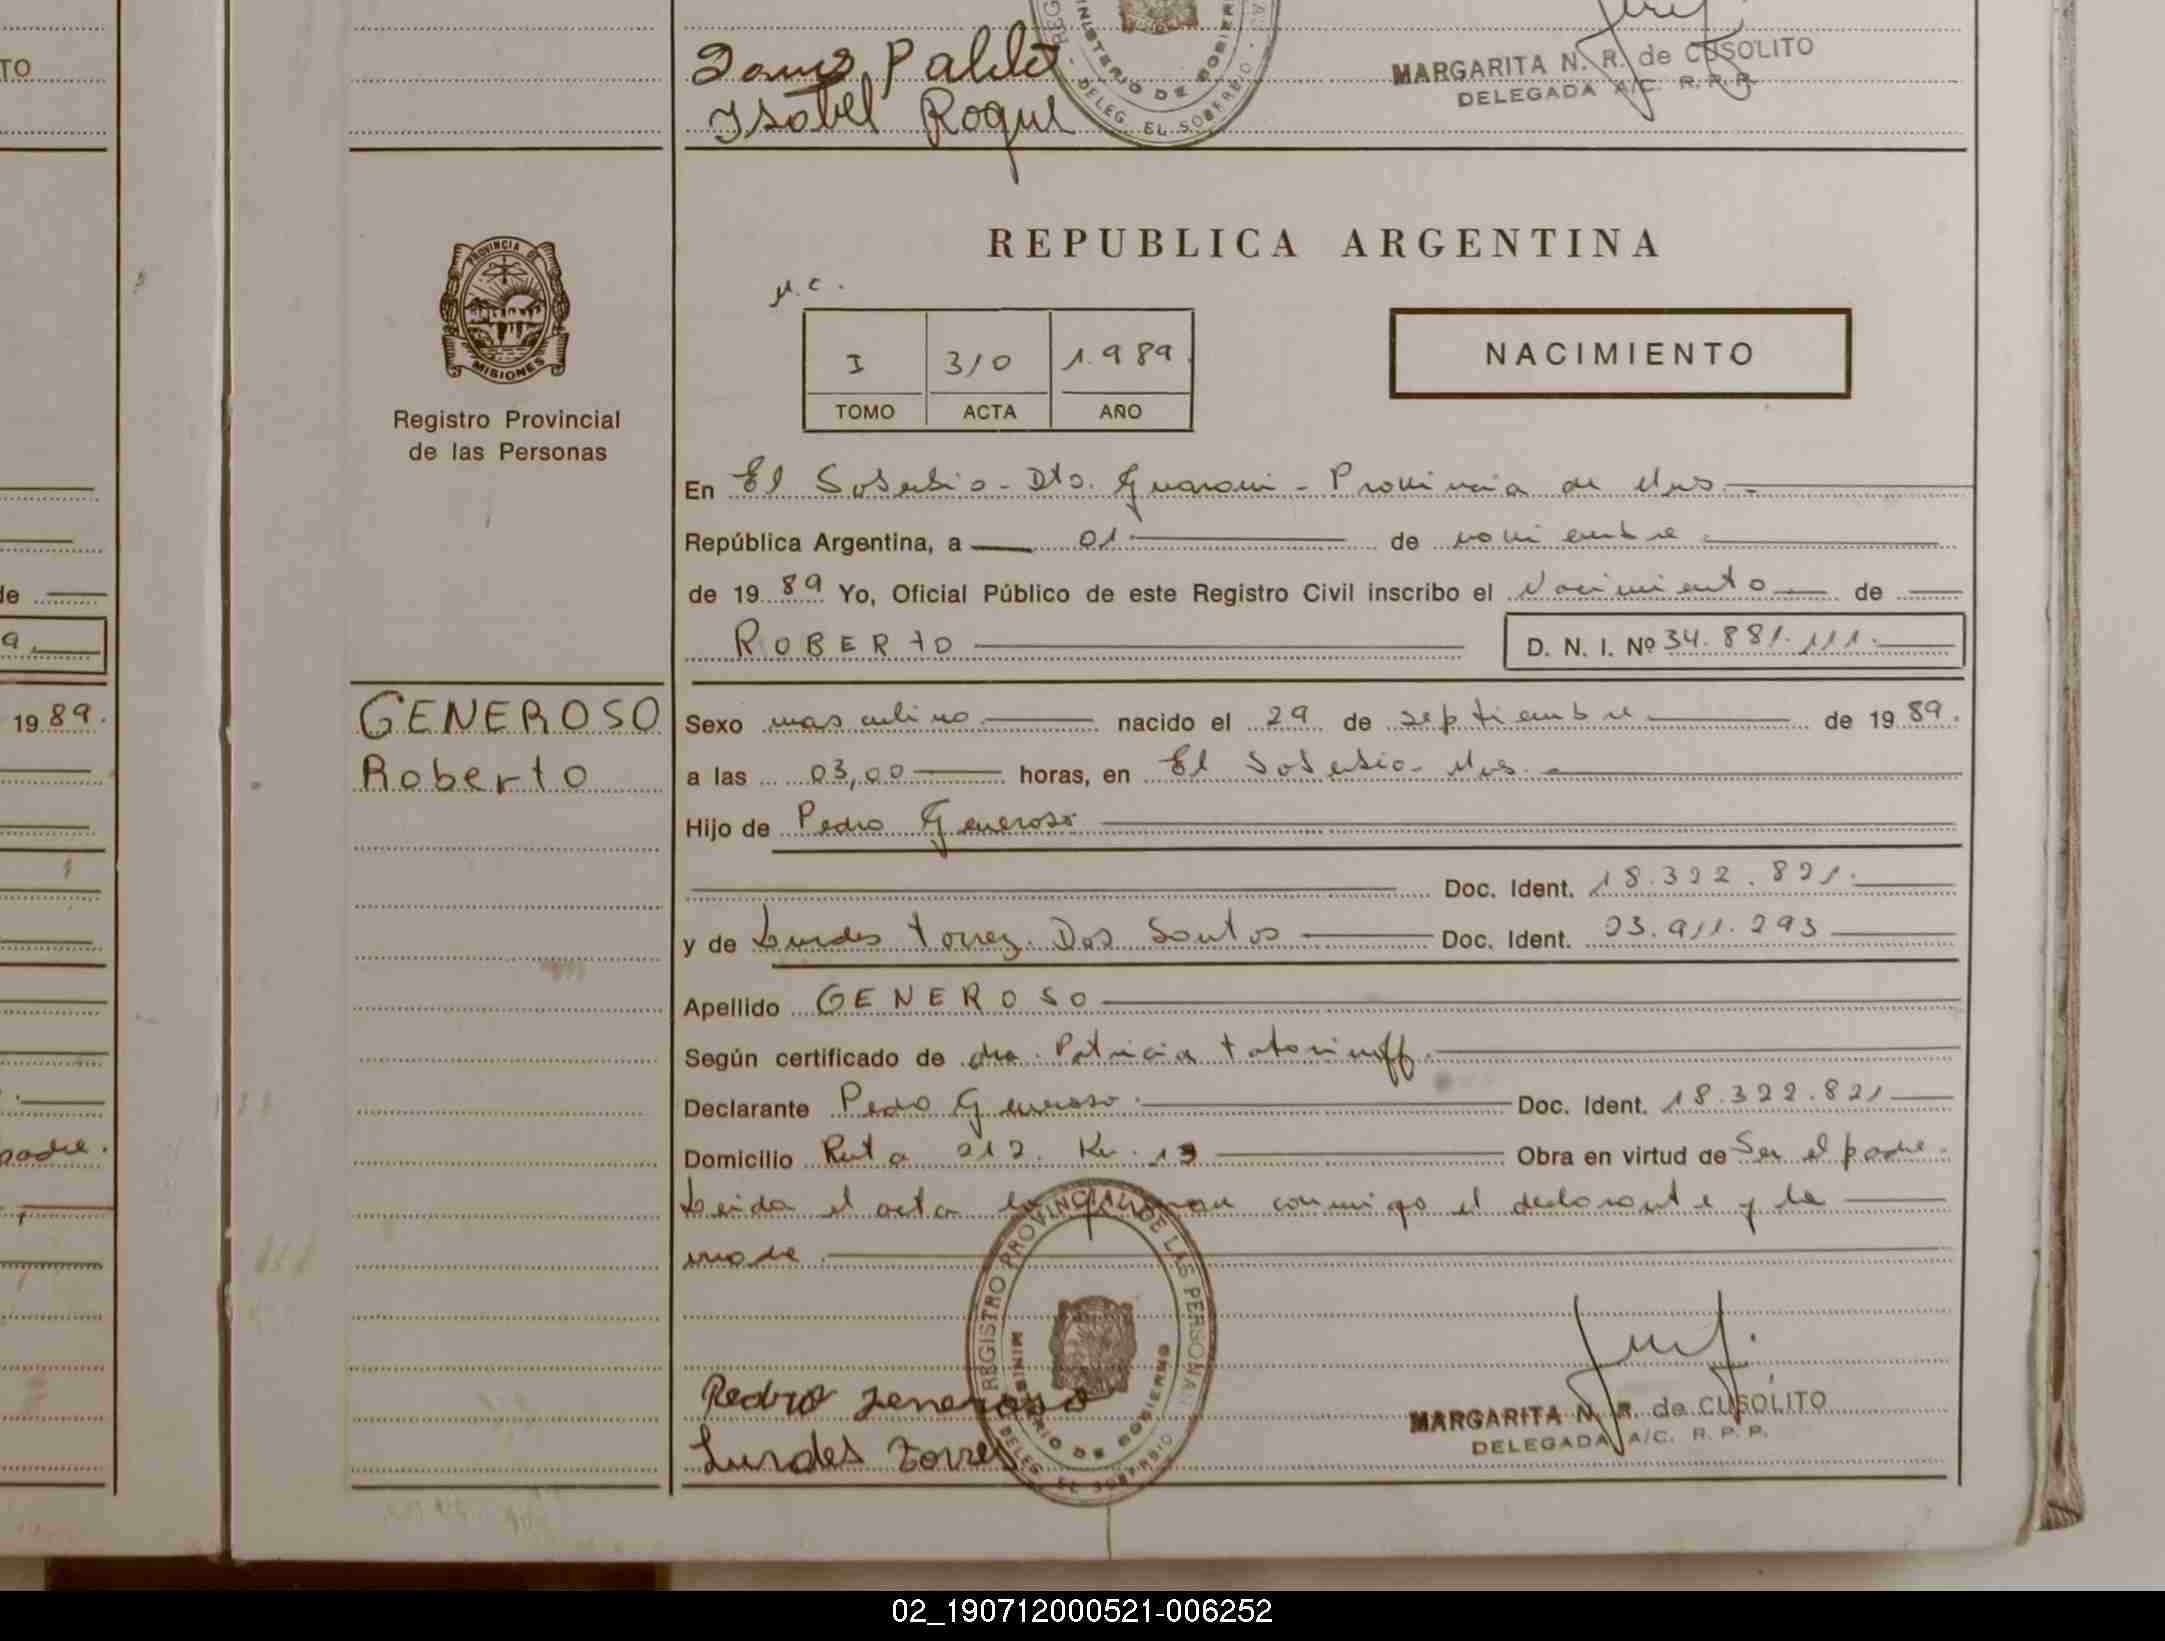 TO
Pablo
Isabel Roque
MINISTERIO DE GOBIERNO
DELEG. EL SOBERBIO
MARGARITA N. R. de CUSOLITO
DELEGADA A/C. R. P. P.
PROVINCIA DE
MISIONES
Registro Provincial
de las Personas
REPUBLICA ARGENTINA
M.C.
I 310 1.989
TOMO ACTA AÑO
NACIMIENTO
En El Soberbio - Dto. Guarani - Provincia de Mnes.
República Argentina, a 01 de noviembre
de 1989 Yo, Oficial Público de este Registro Civil inscribo el Nacimiento de
ROBERTO D. N. I. Nº 34.881.111.
GENEROSO
Roberto
Sexo masculino nacido el 29 de septiembre de 1989.
a las 03,00 horas, en El Soberbio - Mnes.
Hijo de Pedro Generoso
Doc. Ident. 18.322.821.
y de Lurdes Torrez Dos Santos Doc. Ident. 23.911.293
Apellido GENEROSO
Según certificado de dra. Patricia
Declarante Pedro Generoso. Doc. Ident. 18.322.821
Domicilio Ruta 212. Km. 13 Obra en virtud de Ser el padre.
Leida el acta la firman conmigo el declarante y la
madre.
REGISTRO PROVINCIAL DE LAS PERSONAS
MINISTERIO DE GOBIERNO
DELEG. EL SOBERBIO
Pedro Generoso
Lurdes Torres
MARGARITA N. R. de CUSOLITO
DELEGADA A/C. R. P. P.
de
9.
1989.
padre.
02_190712000521-006252